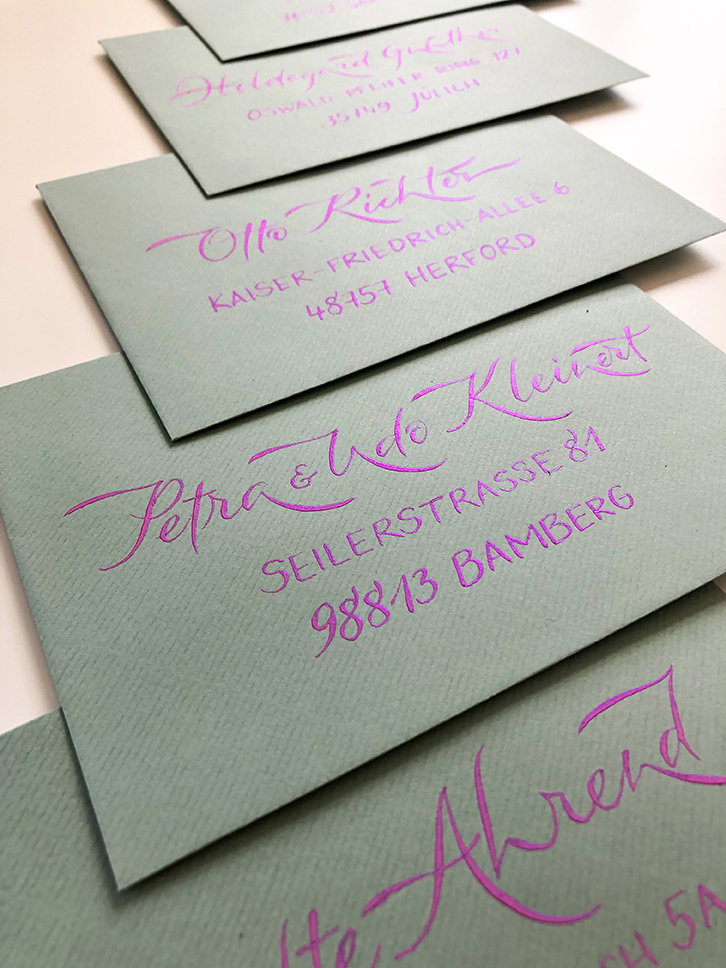 Hildegard Günther
OSWALD MEIER RING 127
35149 JÜLICH
Otto Richter
KAISER-FRIEDRICH-ALLEE 6
48757 HERFORD
Petra & Udo Kleinert
SEILERSTRASSE 81
98813 BAMBERG
Ahrend
5A